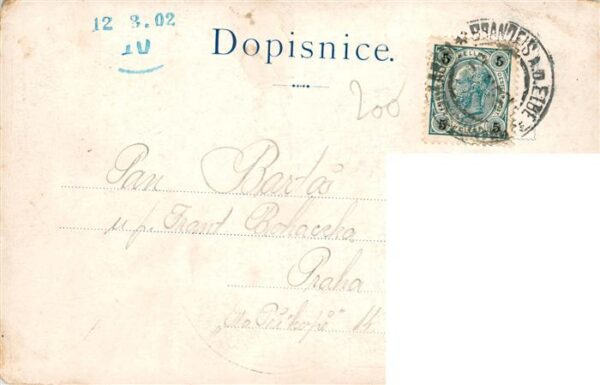 12 3.02
IV
Dopisnice.
BRANDEIS A.D. ELBE
5 5
5 5
200
Pan Bartoš
u p. Frant Bohaczka
Praha
„Na Příkopě" 14